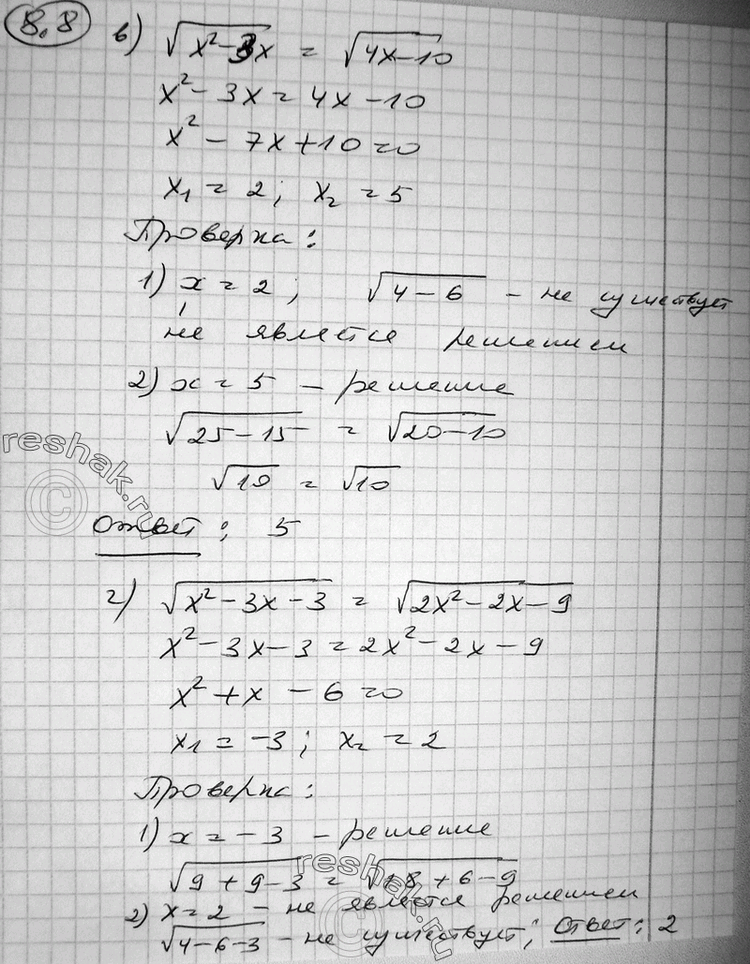 8.8 в) √(x²-3x) = √(4x-10)
x² - 3x = 4x - 10
x² - 7x + 10 = 0
x₁ = 2; x₂ = 5
Проверка:
1) x = 2; √(4-6) - не существует
не является решением
2) x = 5 - решение
√(25-15) = √(20-10)
√10 = √10
Ответ: 5
г) √(x²-3x-3) = √(2x²-2x-9)
x²-3x-3 = 2x²-2x-9
x² + x - 6 = 0
x₁ = -3; x₂ = 2
Проверка:
1) x = -3 - решение
√(9+9-3) = √(18+6-9)
2) x = 2 - не является решением
√(4-6-3) - не существует; Ответ: 2
reshak.ru
©
reshak.ru
©